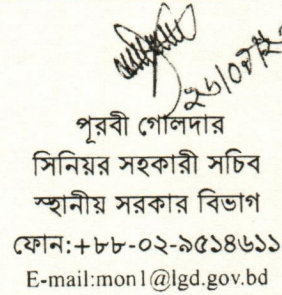 পূরবী গোলদার
সিনিয়র সহকারী সচিব
স্থানীয় সরকার বিভাগ
ফোন:+৮৮-০২-৯৫১৪৬১১
E-mail:mon1@lgd.gov.bd